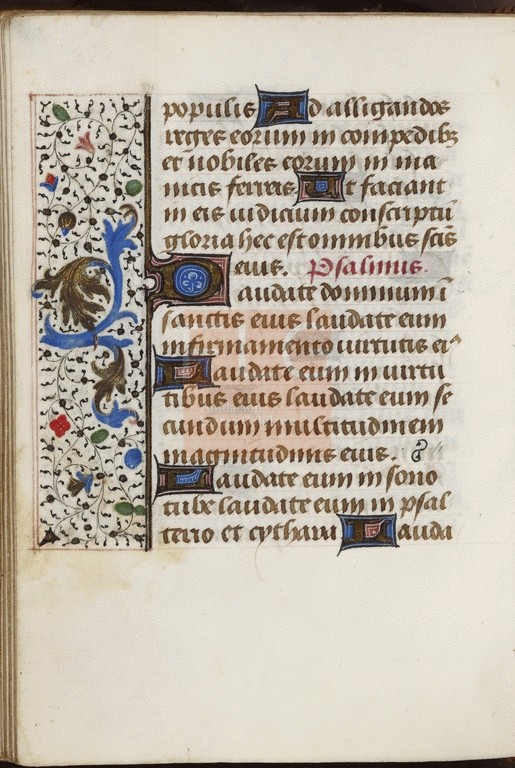 populis Ad alligandos
reges eorum in compedibꝫ
et nobiles eorum in ma
nicis ferreis Ut faciant
in eis iudiciũ conscriptũ
gloria hec est omnibus scĩs
eius. Psalmus.
Laudate dominum ĩ
sanctis eius laudate eum
in firmamento uirtutis ei᾿
Laudate eum in uirtu
tibus eius laudate eum se
cundum multitudinem
magnitudinis eius.
Laudate eum in sono
tube laudate eum in psal
terio et cythara Lauda